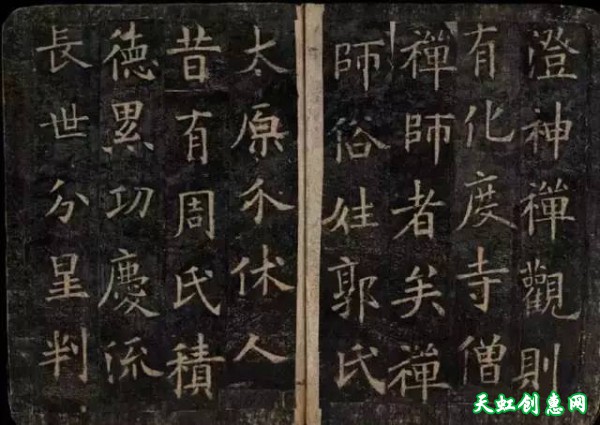 澄神禪觀則
有化度寺僧
禪師者矣禪
師俗姓郭氏
太原介休人
昔有周氏積
德累功慶流
長世分星判
天虹创惠网